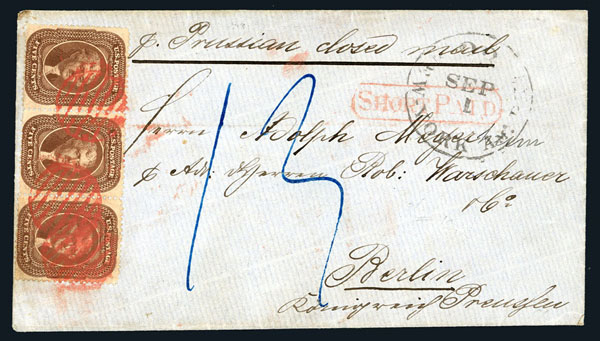 U.S. POSTAGE
FIVE CENTS
U.S. POSTAGE
FIVE CENTS
U.S. POSTAGE
FIVE CENTS
p. Prussian closed mail
SHORT PAID
SEP
1
YORK
Herrn Adolph Meyerheim
p Adr: d Herren Rob: Warschauer
& Co
13
Berlin
Königreich Preußen